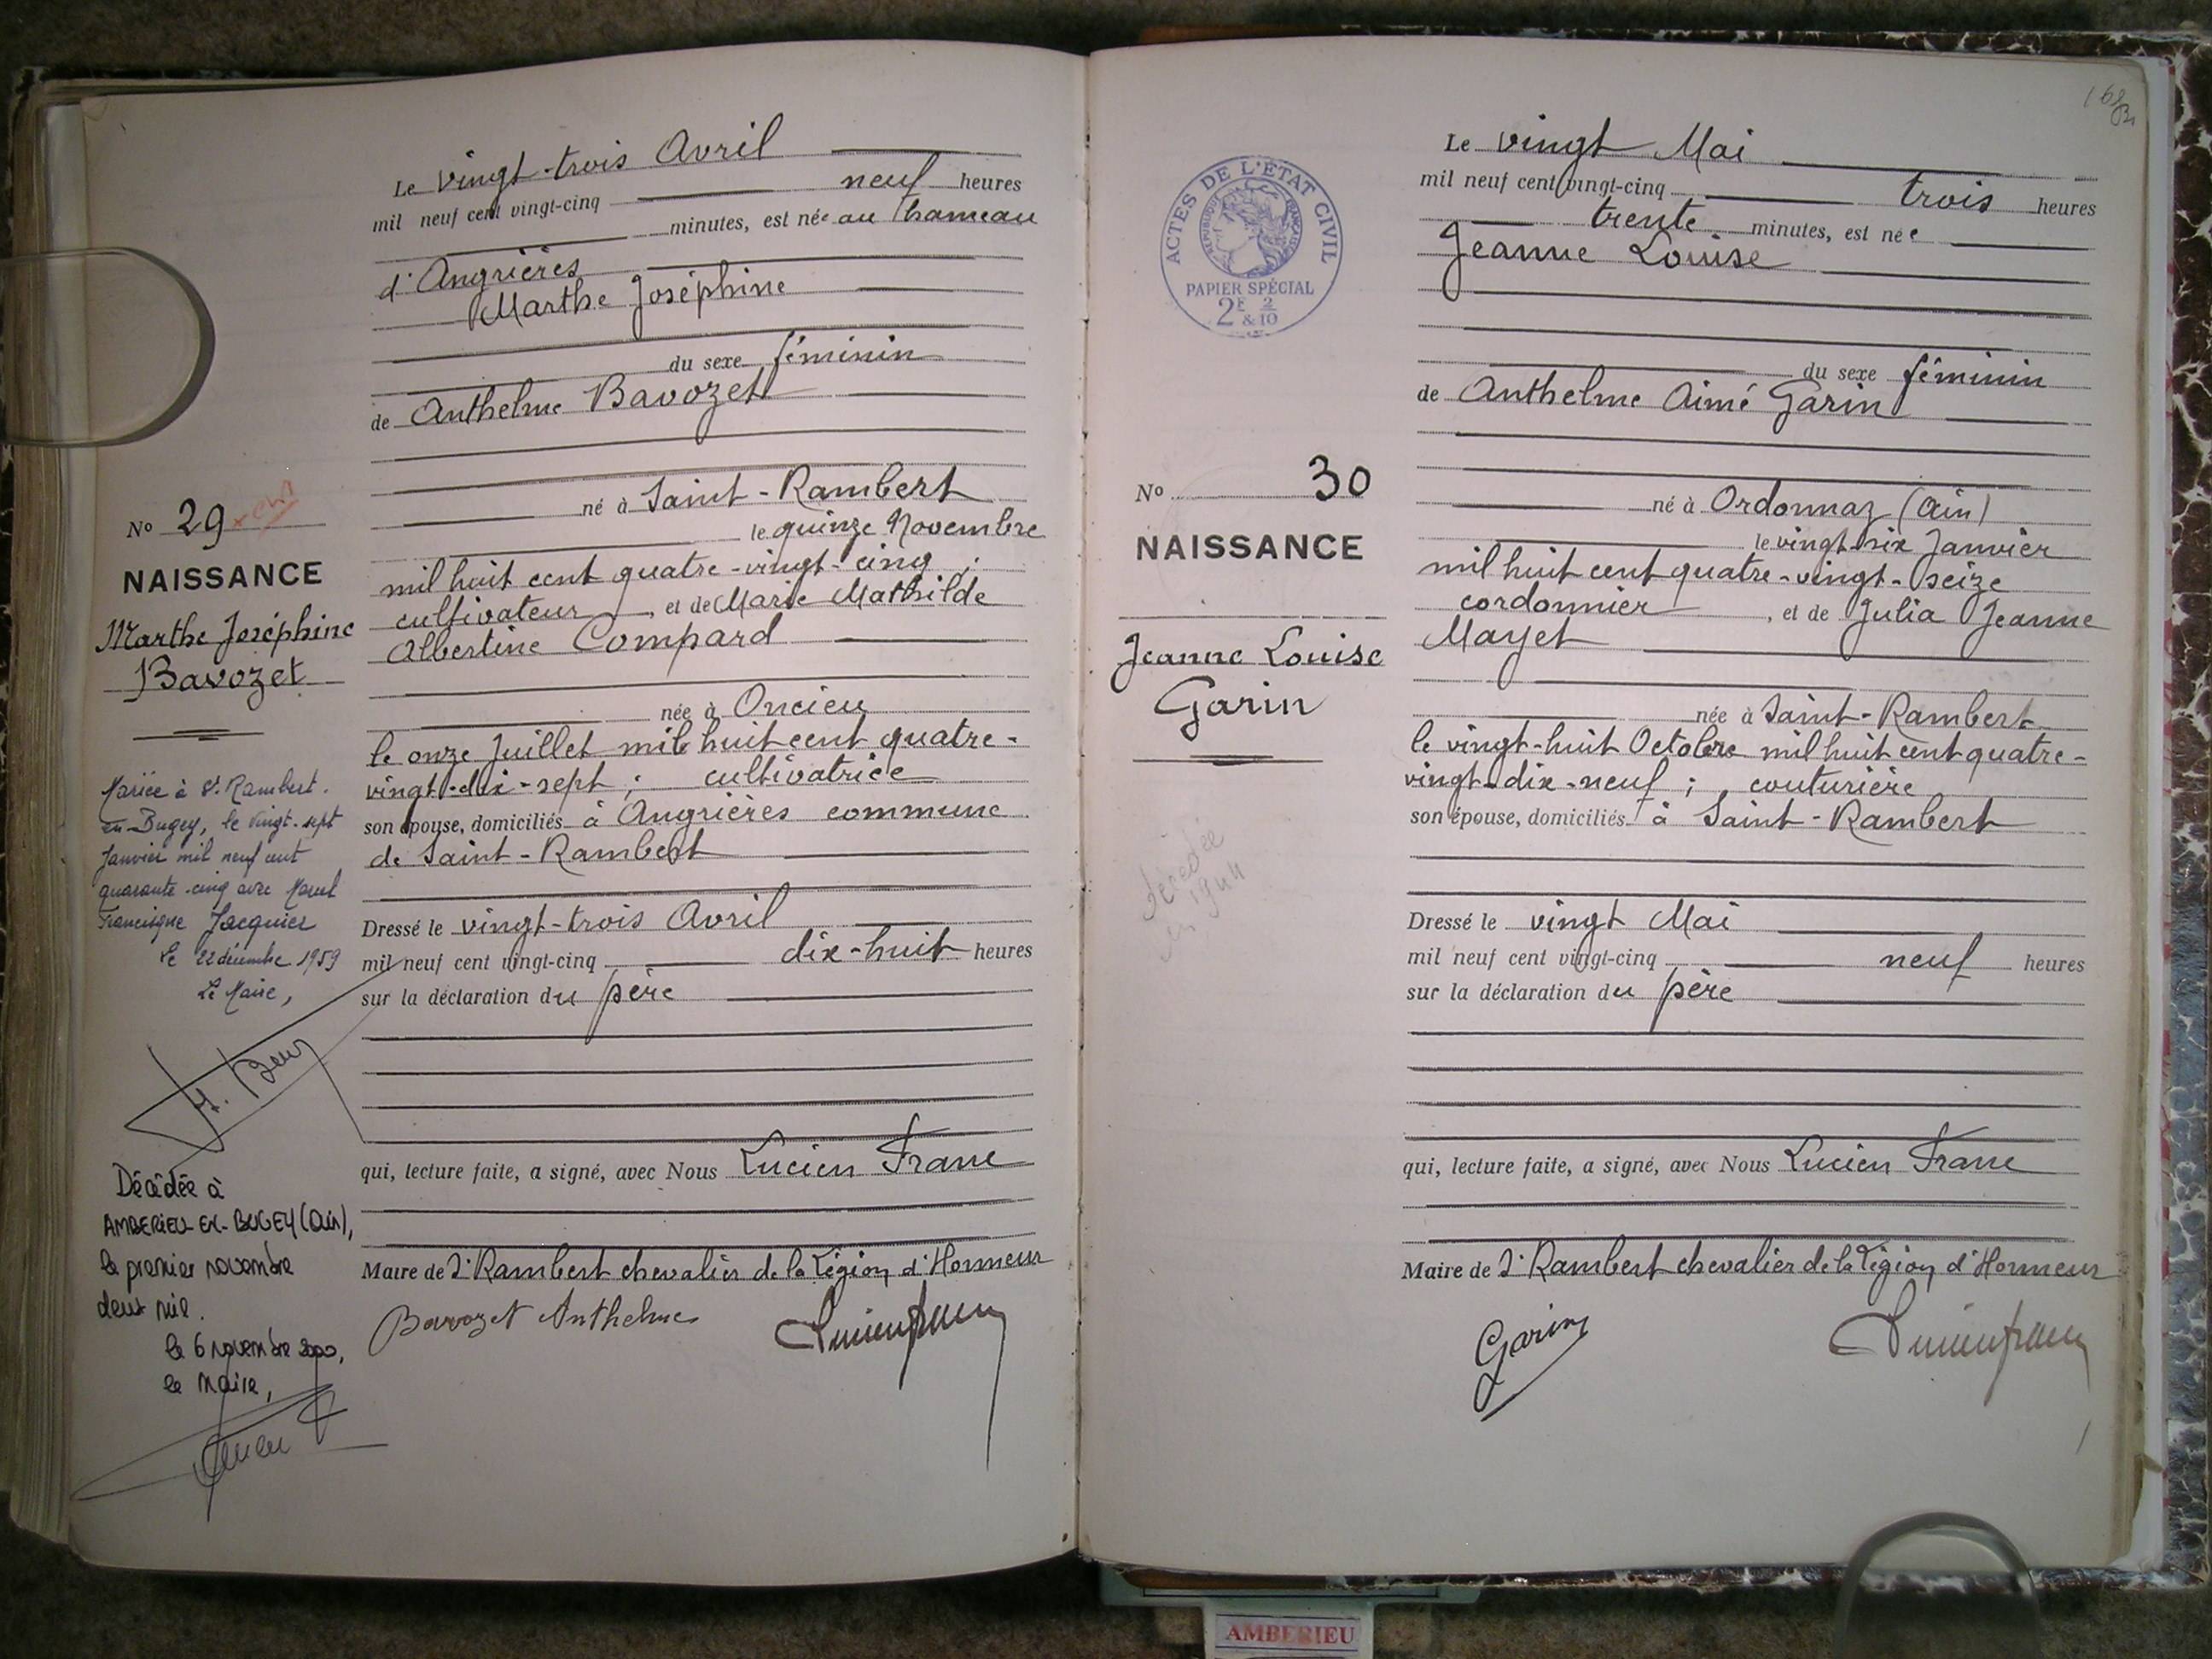 Le vingt-trois Avril
mil neuf cent vingt-cinq neuf heures
minutes, est née au hameau
d'Angrières
Marthe Joséphine
du sexe féminin
de Anthelme Bavozet
né à Saint-Rambert
le quinze Novembre
mil huit cent quatre-vingt-cinq ;
cultivateur, et de Marie Mathilde
Albertine Compard
née à Oncieu
le onze Juillet mil huit cent quatre-
vingt-dix-sept ; cultivatrice
son épouse, domiciliés à Angrières commune
de Saint-Rambert
Dressé le vingt-trois Avril
mil neuf cent vingt-cinq dix-huit heures
sur la déclaration du père
qui, lecture faite, a signé, avec Nous Lucien Franc
Maire de St Rambert chevalier de la Légion d'Honneur
Bavozet Anthelme
No 29
NAISSANCE
Marthe Joséphine
Bavozet
Mariée à St. Rambert.
en-Bugey, le vingt-sept
Janvier mil neuf cent
quarante-cinq avec Marcel
Francisque Jacquier
le 22 décembre 1959
Le Maire,
Décédée à
AMBERIEU-EN-BUGEY (Ain),
le premier novembre
deux mil.
le 6 novembre 2000,
le Maire,
ACTES DE L'ÉTAT CIVIL
RÉPUBLIQUE FRANÇAISE
PAPIER SPÉCIAL
2F 2
& 10
Le vingt Mai
mil neuf cent vingt-cinq trois heures
trente minutes, est née
Jeanne Louise
du sexe féminin
de Anthelme Aimé Garin
né à Ordonnaz (Ain)
le vingt-six Janvier
mil huit cent quatre-vingt-seize
cordonnier, et de Julia Jeanne
Mayet
née à Saint-Rambert
le vingt-huit Octobre mil huit cent quatre-
vingt-dix-neuf ; couturière
son épouse, domiciliés à Saint-Rambert
Dressé le vingt Mai
mil neuf cent vingt-cinq neuf heures
sur la déclaration du père
qui, lecture faite, a signé, avec Nous Lucien Franc
Maire de St Rambert chevalier de la Légion d'Honneur
Garin
No 30
NAISSANCE
Jeanne Louise
Garin
décédée
en 1944
AMBERIEU